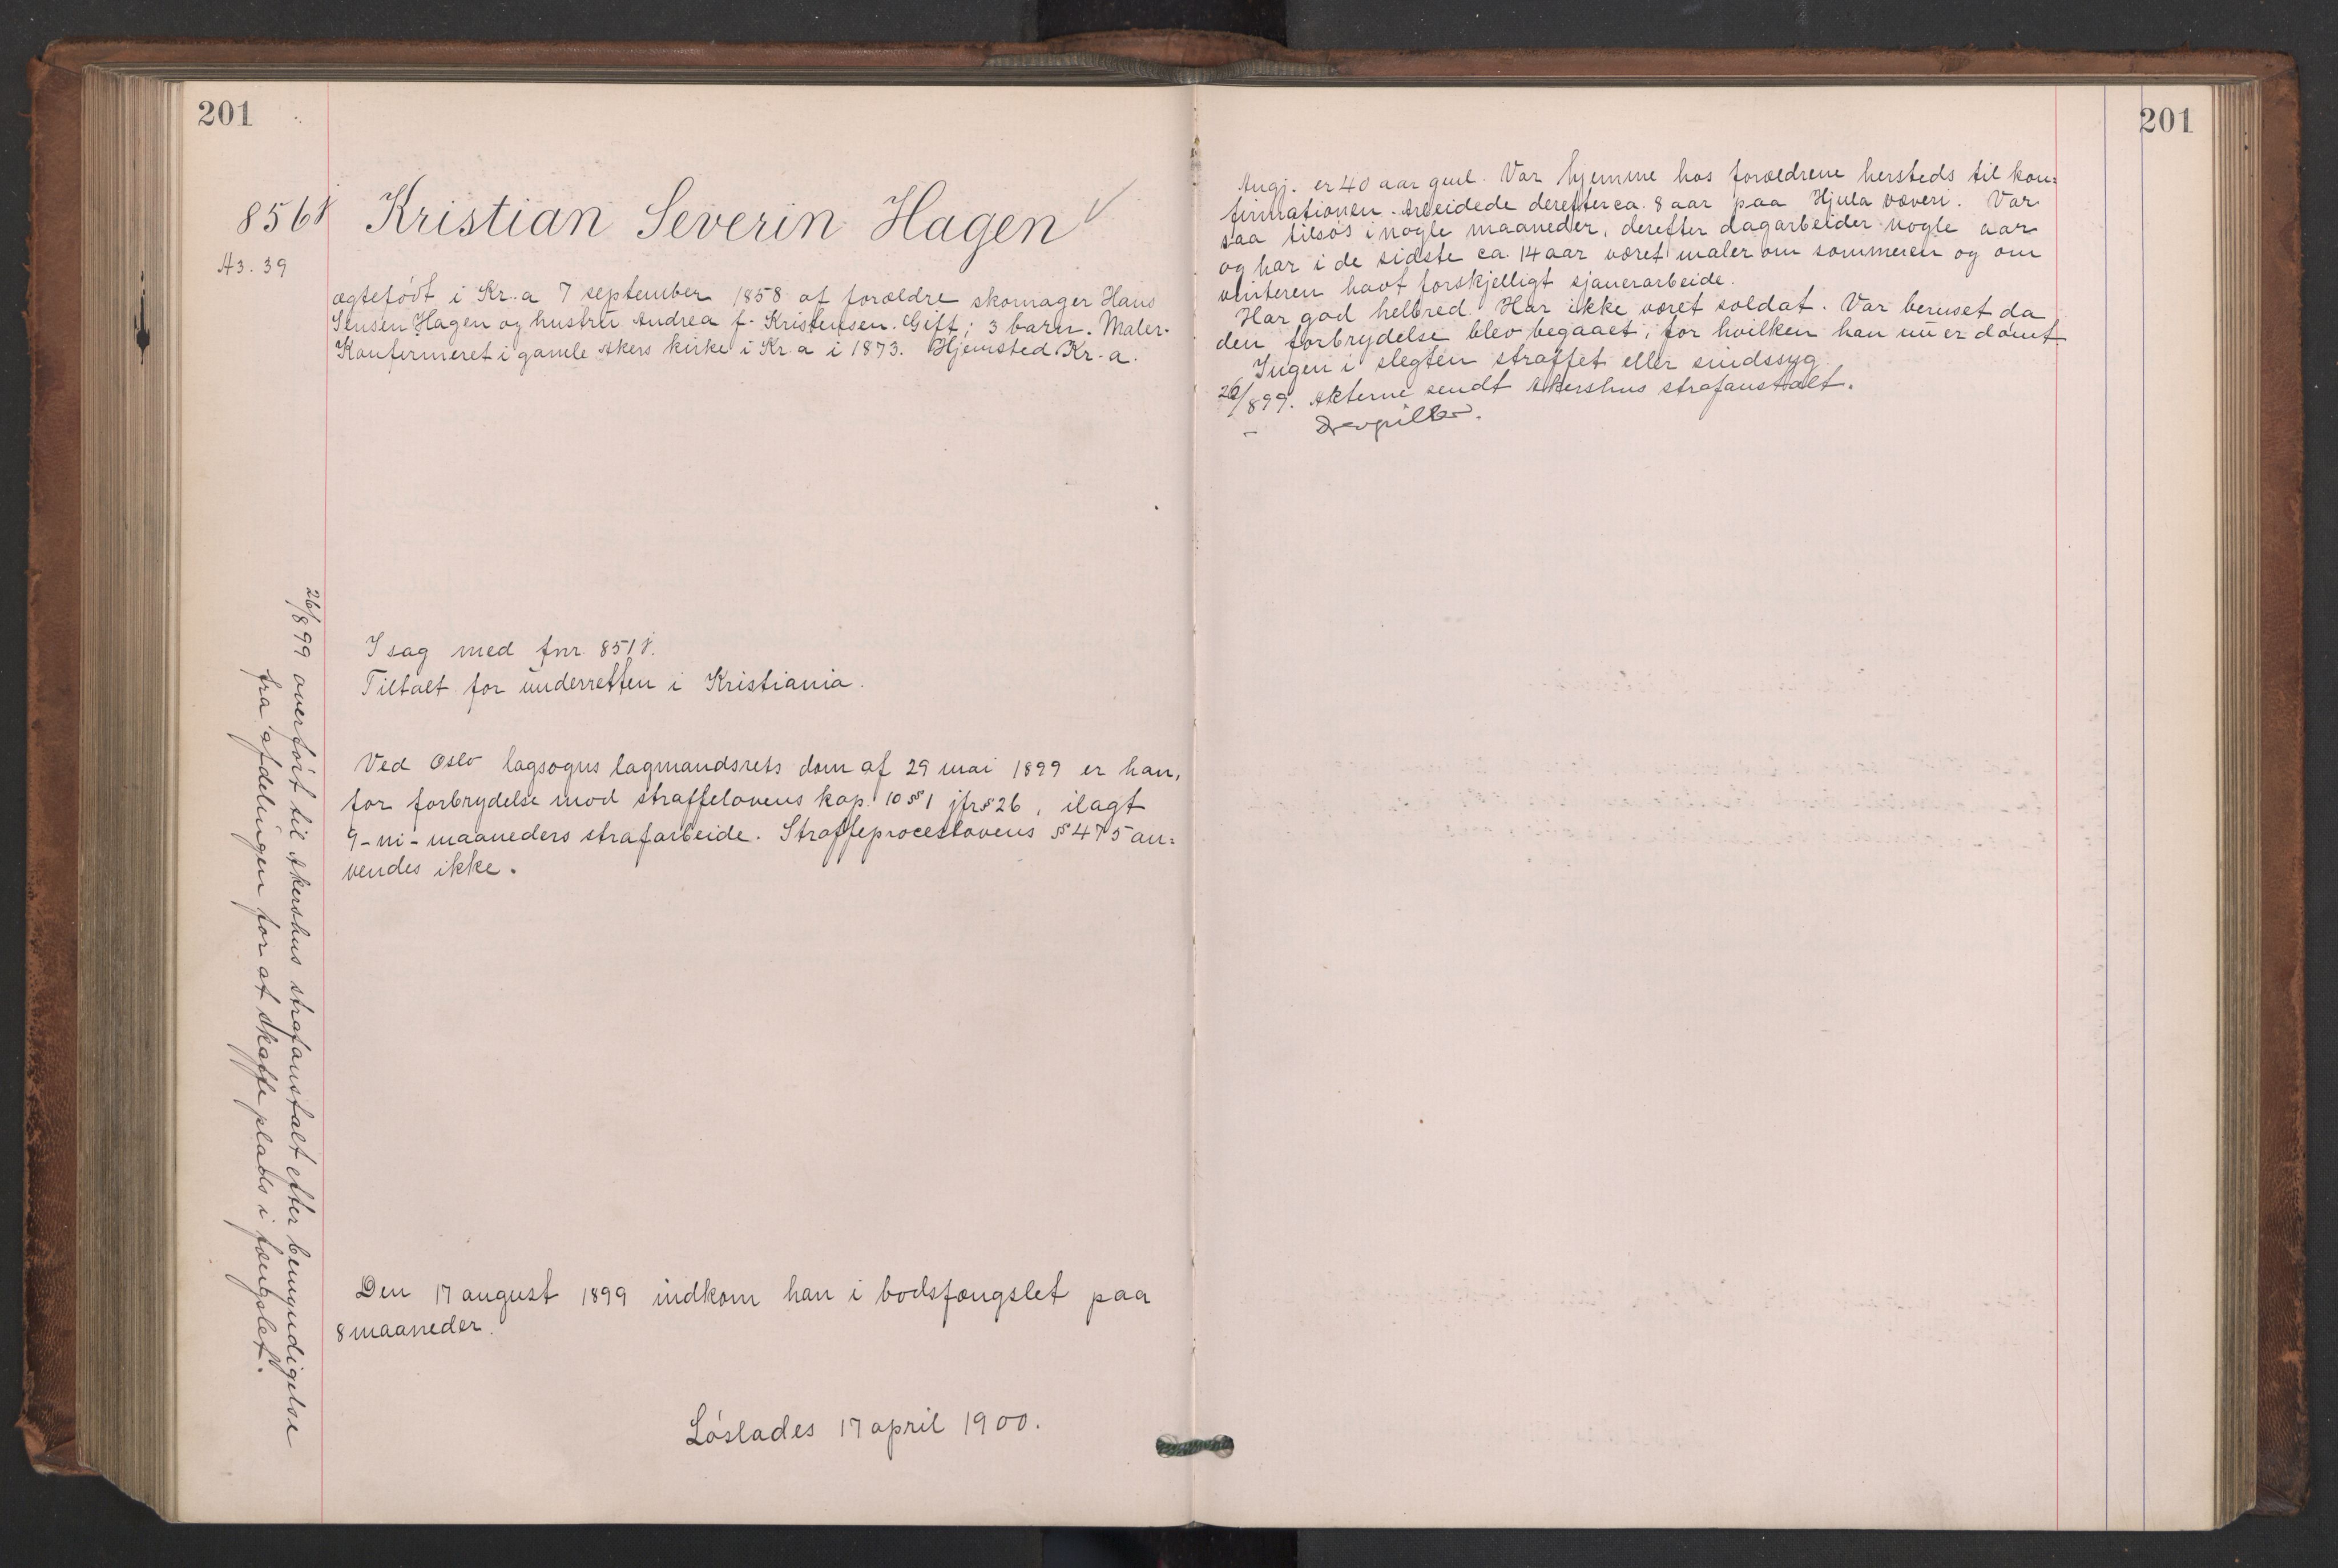 201
856
A3. 39
Kristian Severin Hagen
ægtefödt i Kr.a 7 september 1858 af forældre skomager Hans
Jensen Hagen og hustru Andrea f. Kristensen. Gift; 3 barn. Maler.
Konfirmeret i gamle Akers kirke i Kr.a i 1873. Hjemsted Kr.a.
I sag med fnr. 851
Tiltalt for underretten i Kristiania.
Ved Oslo lagsogns lagmandsrets dom af 29 mai 1899 er han,
for forbrydelse mod straffelovens kap. 10 § 1 jfr § 26, ilagt
9-ni-maaneders strafarbeide. Straffeproceslovens § 475 an=
vendes ikke.
Den 17 august 1899 indkom han i bodsfængslet paa
8 maaneder.
Löslades 17 april 1900.
26/8 99 overfört til Akershus strafanstalt efter bemyndigelse
fra afdelingen for at skaffe plads i fængslet.
201
Angj. er 40 aar gml. Var hjemme hos forældrene hersteds til kon=
firmationen. Arbeidede derefter ca. 8 aar paa Hjula væveri. Var
saa tilsös i nogle maaneder, derefter dagarbeider nogle aar
og har i de sidste ca. 14 aar været maler om sommeren og om
vinteren havt forskjelligt sjauerarbeide.
Har god helbred. Har ikke været soldat. Var beruset da
den forbrydelse blev begaaet, for hvilken han nu er dömt.
Ingen i slegten straffet eller sindssyg.
26/8 99. Akterne sendt Akershus strafanstalt.